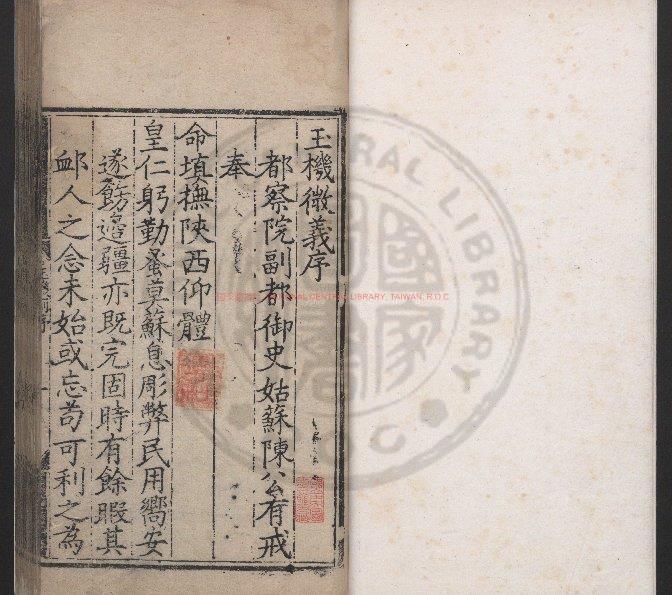 玉機微義序
都察院副都御史姑蘇陳公有戒
奉
命填撫陝西仰體
皇仁躬勤蚤莫蘇息彫弊民用嚮安
遂飭邉疆亦既完固時有餘暇其
䘏人之念未始或忘苟可利之為
NATIONAL CENTRAL LIBRARY, TAIWAN, R.O.C